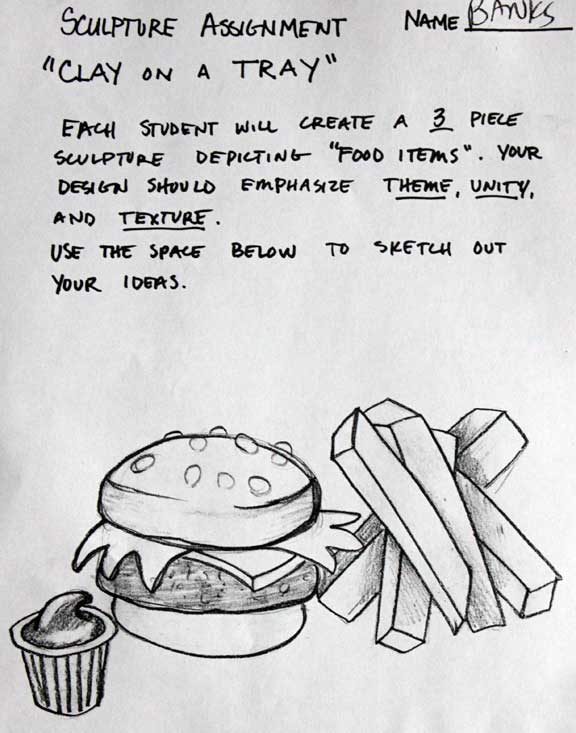 SCULPTURE ASSIGNMENT NAME BANKS
"CLAY ON A TRAY"
EACH STUDENT WILL CREATE A 3 PIECE
SCULPTURE DEPICTING "FOOD ITEMS". YOUR
DESIGN SHOULD EMPHASIZE THEME, UNITY,
AND TEXTURE.
USE THE SPACE BELOW TO SKETCH OUT
YOUR IDEAS.